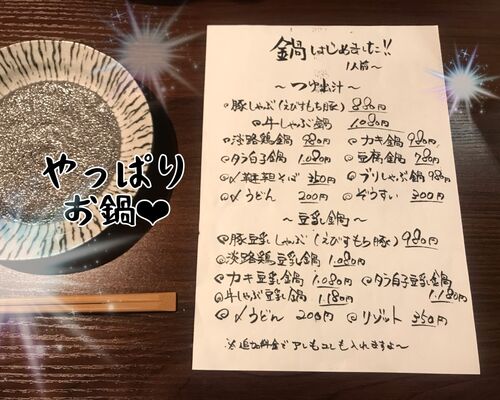 鍋はじめました!!
1人前~
~つけ出汁~
◎豚しゃぶ(えびすもち豚) 880円
◎牛しゃぶ鍋 1.080円
◎淡路鶏鍋 980円 ◎カキ鍋 980円
◎タラ白子鍋 1.080円 ◎豆腐鍋 780円
◎〆韃靼そば 350円 ◎ブリしゃぶ鍋 980円
◎〆うどん 200円 ◎ぞうすい 300円
~豆乳鍋~
◎豚豆乳しゃぶ(えびすもち豚) 980円
◎淡路鶏豆乳鍋 1.080円
◎カキ豆乳鍋 1.080円 ◎タラ白子豆乳鍋 1.180円
◎牛しゃぶ豆乳鍋 1.180円
◎〆うどん 200円 ◎リゾット 350円
※追加料金でアレもコレも入れますよ~
やっぱり
お鍋❤